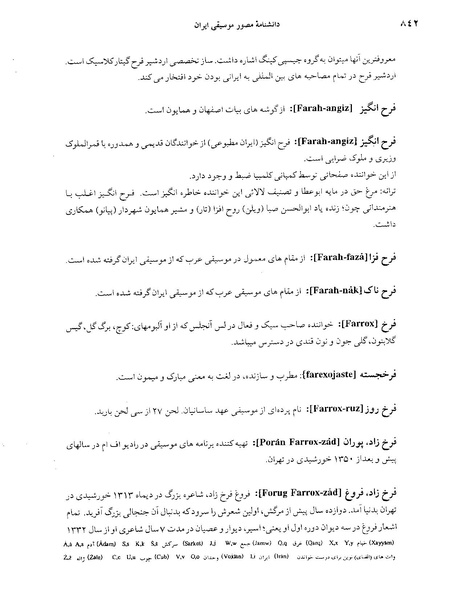 ۸٤۲
دانشنامهٔ مصور موسیقی ایران
معروفترین آنها میتوان به‌گروه جیپسی کینگ اشاره داشت. ساز تخصصی اردشیر فرح گیتار کلاسیک است.
اردشیر فرح در تمام مصاحبه های بین المللی به ایرانی بودن خود افتخار می‌کند.
فرح انگیز [Farah-angiz]: از گوشه های بیات اصفهان و همایون است.
فرح انگیز [Farah-angiz]: فرح انگیز (ایران مطبوعی) از خوانندگان قدیمی و همدوره با قمرالملوک
وزیری و ملوک ضرابی است.
از این خواننده صفحاتی توسط کمپانی کلمبیا ضبط و وجود دارد.
ترانه: مرغ حق در مایه ابوعطا و تصنیف لالائی این خواننده خاطره انگیز است. فرح انگیز اغلب با
هنرمندانی چون؛ زنده یاد ابوالحسن صبا (ویلن) روح افزا (تار) و مشیر همایون شهردار (پیانو) همکاری
داشت.
فرح فزا [Farah-fazá]: از مقام های معمول در موسیقی عرب که از موسیقی ایران گرفته شده است.
فرح ناک [Farah-nák]: از مقام های موسیقی عرب که از موسیقی ایران گرفته شده است.
فرخ [Farrox]: خواننده صاحب سبک و فعال در لس آنجلس که از او آلبومهای: کوچ، برگ گل، گیس
گلابتون، گلی جون و نون قندی در دسترس میباشد.
فرخجسته [farexojaste]: مطرب و سازنده، در لغت به معنی مبارک و میمون است.
فرخ روز [Farrox-ruz]: نام پرده‌ای از موسیقی عهد ساسانیان. لحن ۲۷ از سی لحن باربد.
فرخ زاد، پوران [Porán Farrox-zád]: تهیه کننده برنامه های موسیقی در رادیو اف ام در سالهای
پیش و بعد از ۱۳۵۰ خورشیدی در تهران.
فرخ زاد، فروغ [Forug Farrox-zád]: فروغ فرخ زاد، شاعره بزرگ در دیماه ۱۳۱۳ خورشیدی در
تهران بدنیا آمد. دوازده سال پیش از مرگش، اولین شعرش را سرود که بدنبال آن جنجالی بزرگ آفرید. تمام
اشعار فروغ در سه دیوان دوره اول او یعنی؛ اسیر، دیوار و عصیان در مدت ۷ سال شاعری او از سال ۱۳۳۲